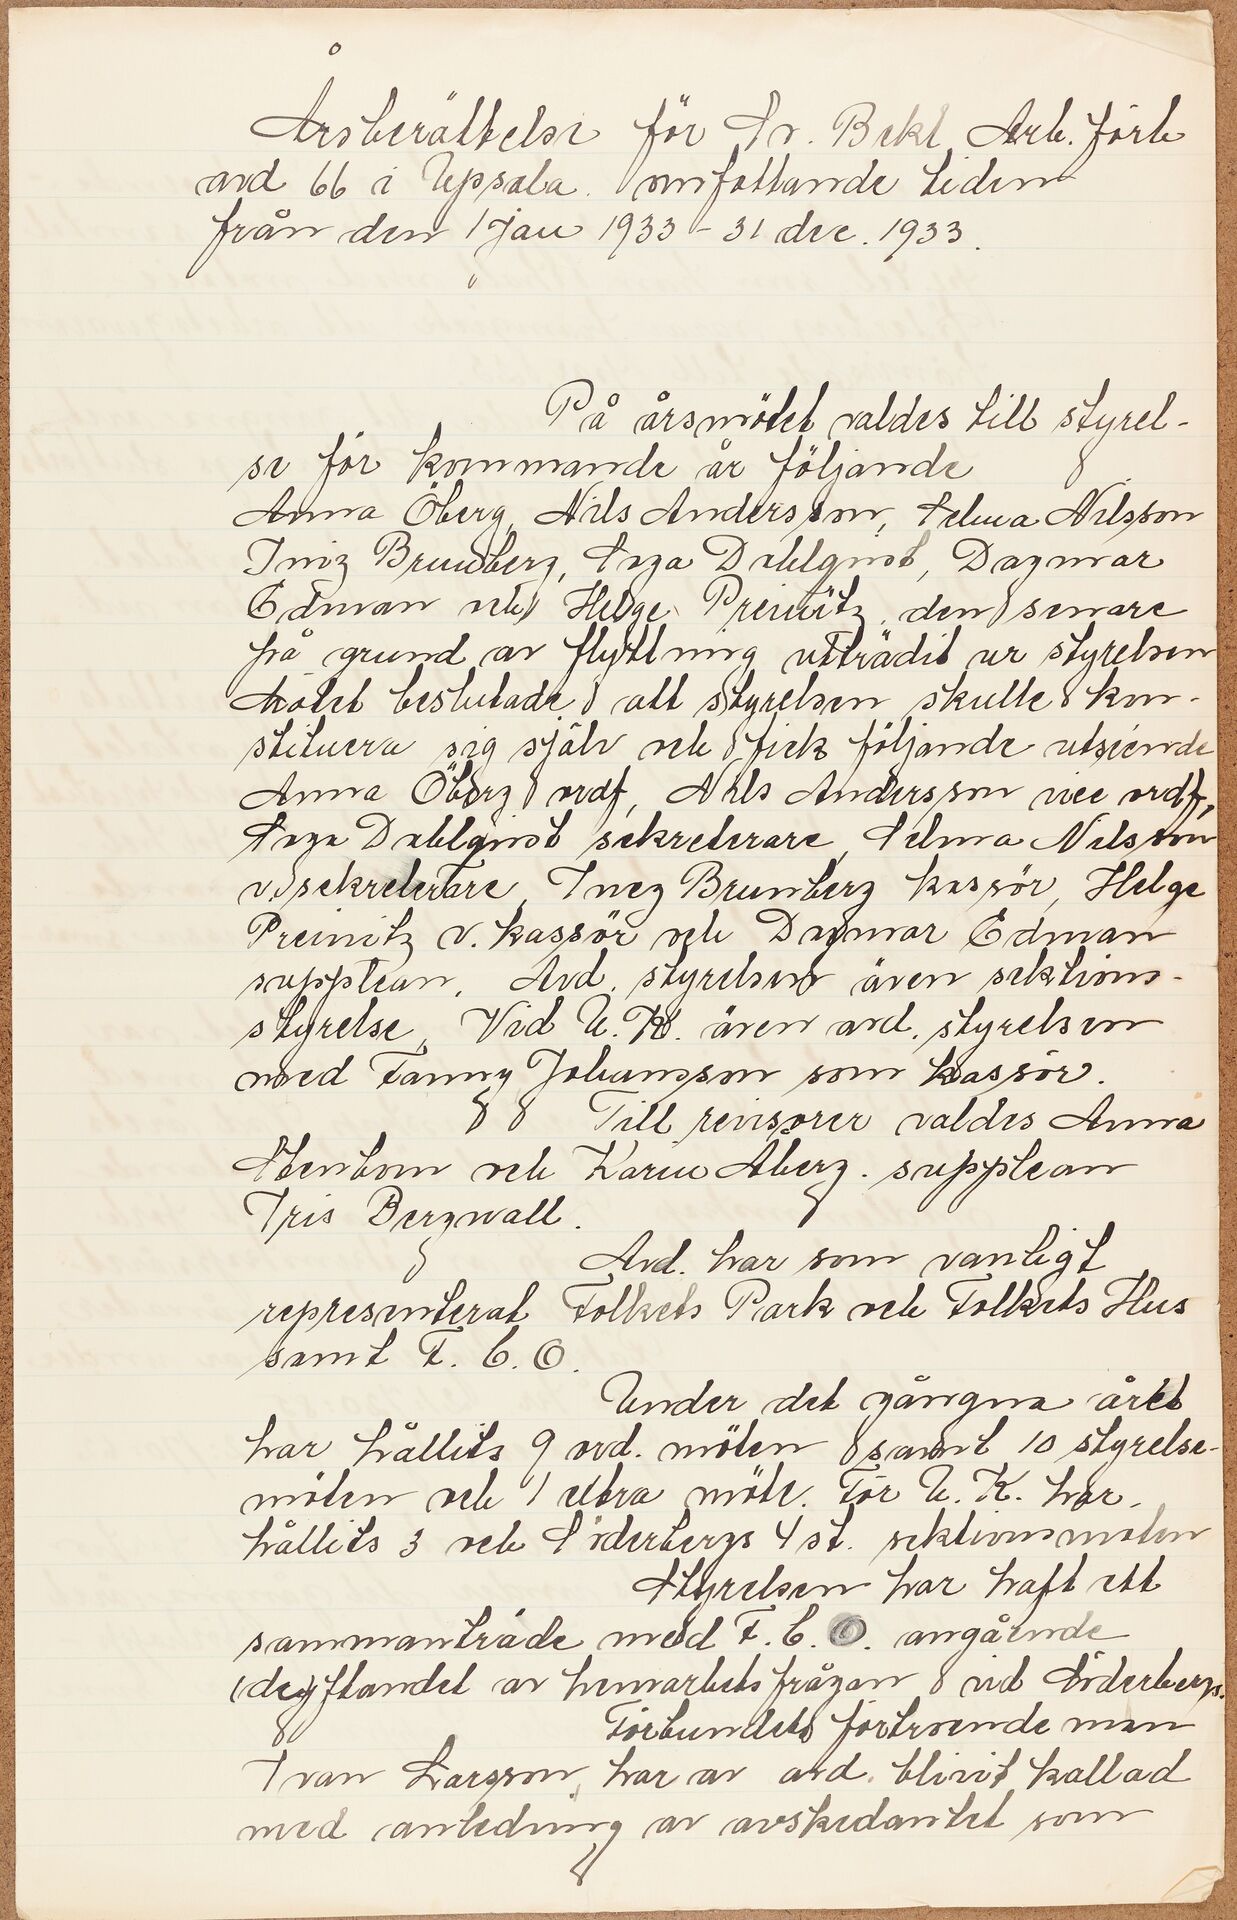 Årsberättelse för Sv. Bekl. Arb. förb
avd 66 i Upsala. omfattande tiden
från den 1 jan 1933 - 31 dec. 1933.
På årsmötet valdes till styrel-
se för kommande år följande
Anna Öberg, Nils Andersson, Selma Nilsson
Inez Brunberg, Inga Dahlqvist, Dagmar
Edman och Helge Preinitz, den senare
på grund av flyttning utträdit ur styrelsen
Mötet beslutade att styrelsen skulle kon-
stituera sig själv och fick följande utseende
Anna Öberg ordf, Nils Andersson vice ordf,
Inga Dahlqvist sekreterare, Selma Nilsson
v. sekreterare, Inez Brunberg kassör, Helge
Preinitz v. kassör och Dagmar Edman
supplean. Avd. styrelsen även sektions-
styrelse, Vid U. K. även avd. styrelsen
med Fanny Johansson som kassör.
Till revisorer valdes Anna
Stenbom och Karin Åberg. supplean
Iris Bergwall.
Avd. har som vanligt
representerat Folkets Park och Folkets Hus
samt F. C. O.
Under det gångna året
har hållits 9 ord. möten samt 10 styrelse-
möten och 1 extra möte. För U. K. har
hållits 3 och Söderbergs 4 st. sektionsmöten
Styrelsen har haft ett
sammanträde med F. C. O. angående
dryftandet av hemarbetsfrågan vid Söderbergs.
Förbundets förtroende man
Ivan Larsson, har av avd. blivit kallad
med anledning av avskedantet som